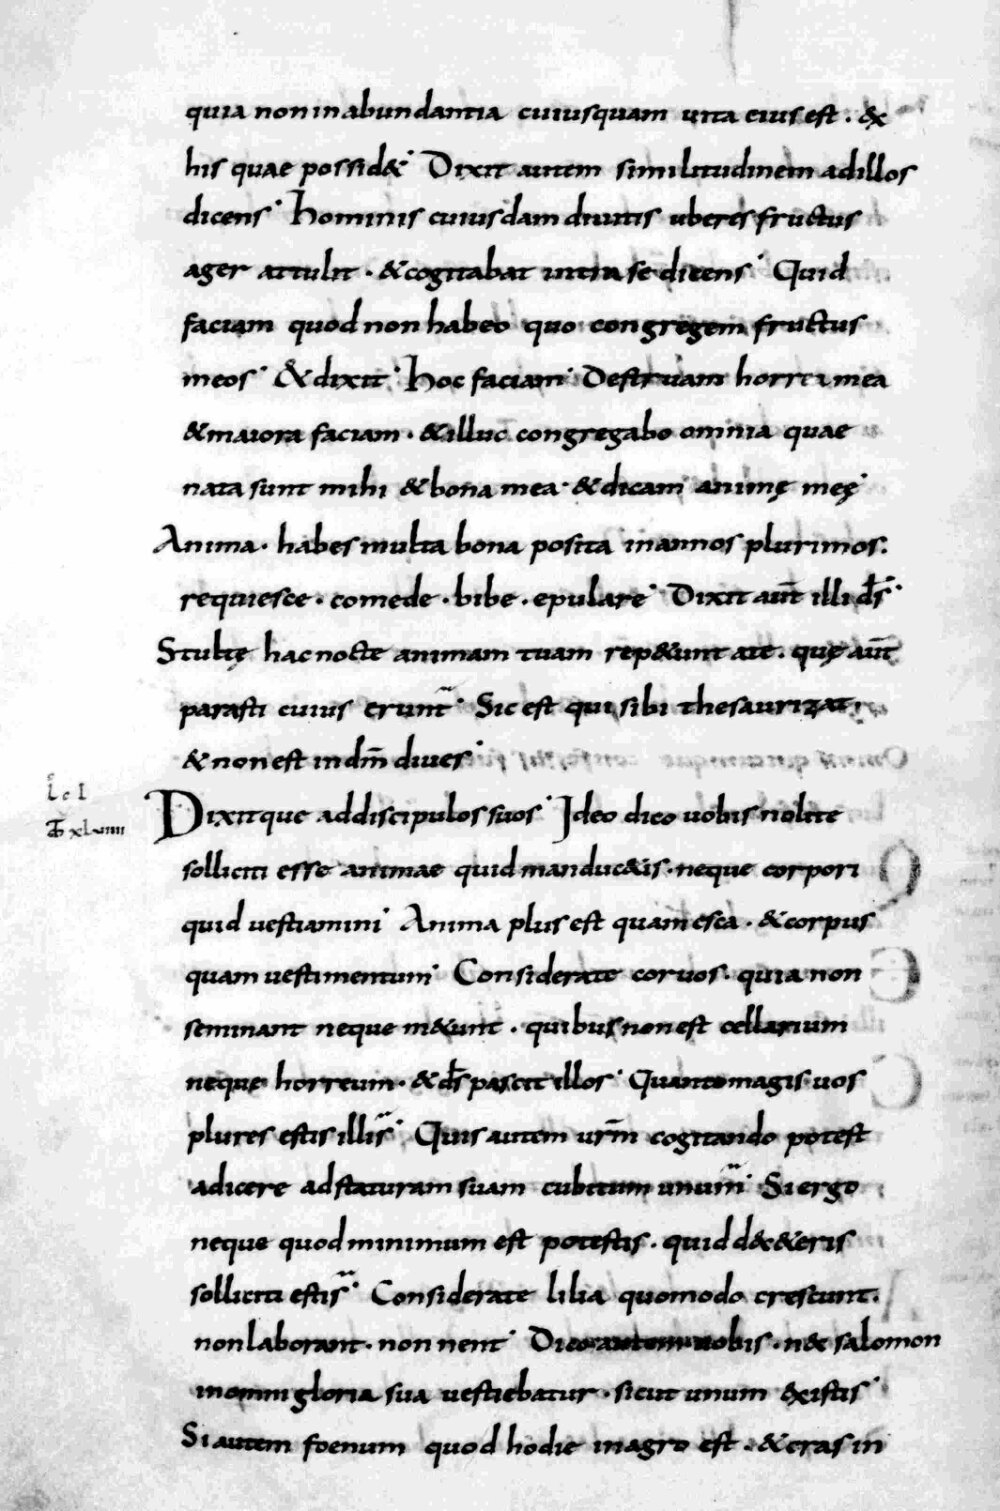 quia non in abundantia cuiusquam uita eius est . &x
his quae possid& · Dixit autem similitudinem adillos
dicens · Hominis cuiusdam diuitis uberes fructus
ager attulit · & cogitabat intra se dicens · Quid
faciam quod non habeo quo congregem fructus
meos · & dixit · Hoc faciam · Destruam horrea mea
& maiora faciam · & illuc congregabo omnia quae
nata sunt mihi & bona mea · & dicam animę meę ·
Anima · habes multa bona posita in annos plurimos:
requiesce · comede · bibe · epulare · Dixit aūt illi d̄s ·
Stultę hac nocte animam tuam rep&unt ate · quę aūt
parasti cuius erunt · Sic est qui sibi thesaurizat ·
& non est in dm̄ diues ·
Dixitque addiscipulos suos · Ideo dico uobis nolite
solliciti esse animae quid manduc&is · neque corpori
quid uestiamini · Anima plus est quam esca · & corpus
quam uestimentum · Considerate coruos · quia non
seminant neque m&unt · quibus non est cellarium
neque horreum · & d̄s pascit illos · Quanto magis uos
plures estis illis · Quis autem urm̄ cogitando potest
adicere ad staturam suam cubitum unum · Si ergo
neque quod minimum est potestis · quid d&c&eris
solliciti estis · Considerate lilia quomodo crescunt ·
non laborant · non nent · Dico autem uobis · nec salomon
in omni gloria sua uestiebatur · sicut unum &xistis ·
Si autem foenum quod hodie in agro est · & cras in